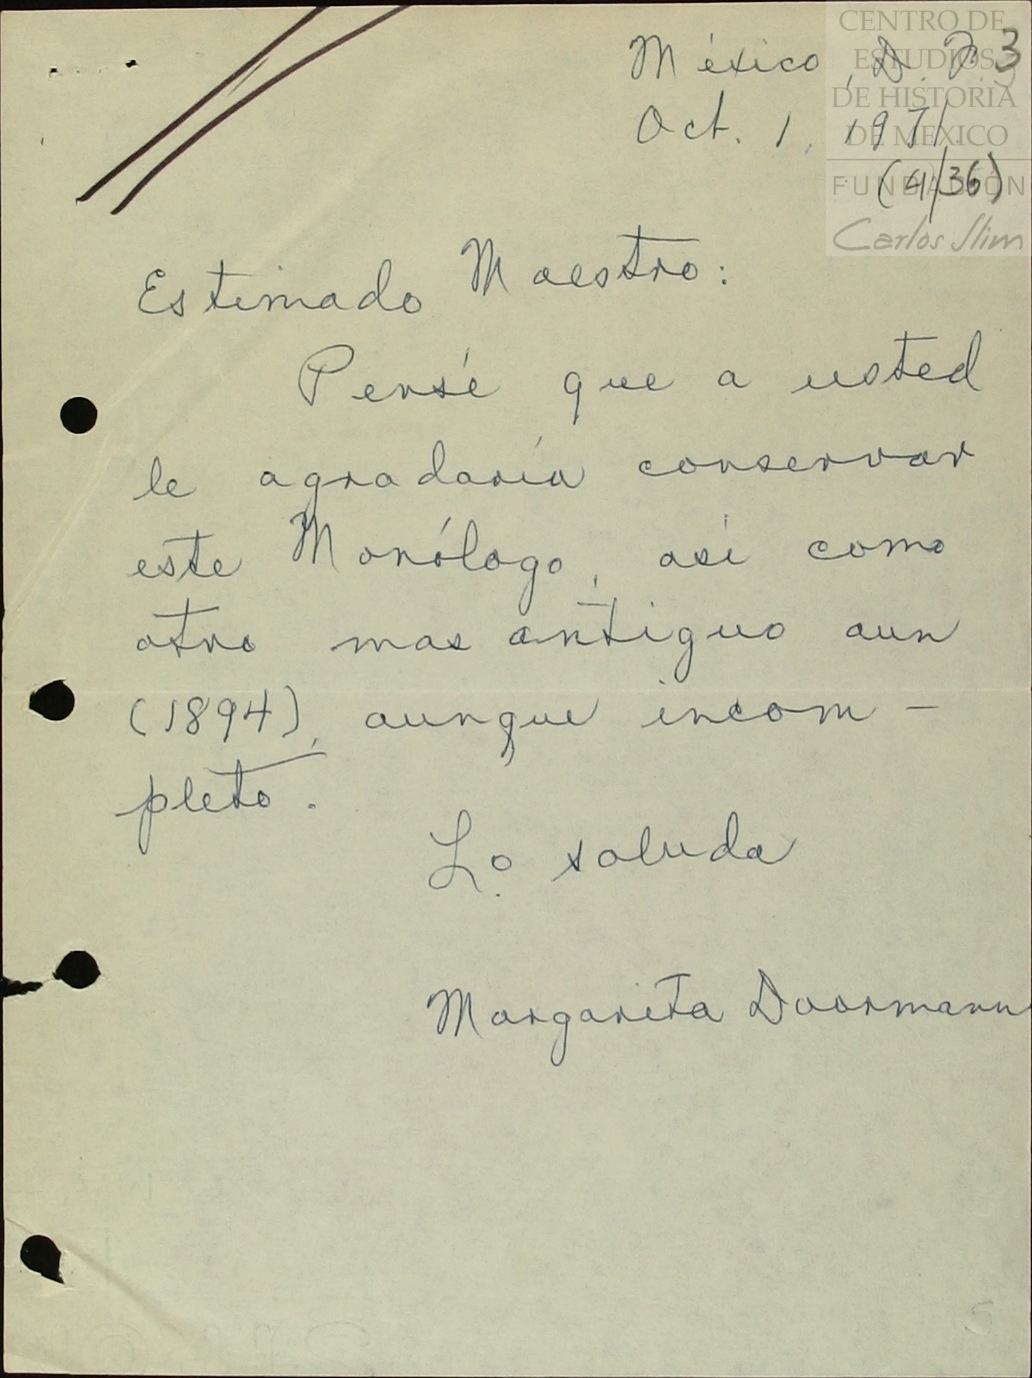 CENTRO DE
ESTUDIOS
DE HISTORIA
DE MEXICO
FUNDACIÓN
Carlos Slim
3
México, D. F.
Oct. 1, 1971.
(4/36)
Estimado Maestro:
Pensé que a usted
le agradaría conservar
este Monólogo, asi como
otro mas antiguo aun
(1894), aunque incom-
pleto.
Lo saluda
Margarita Doormann